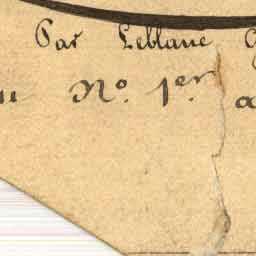 Par Leblanc
N.o 1.er